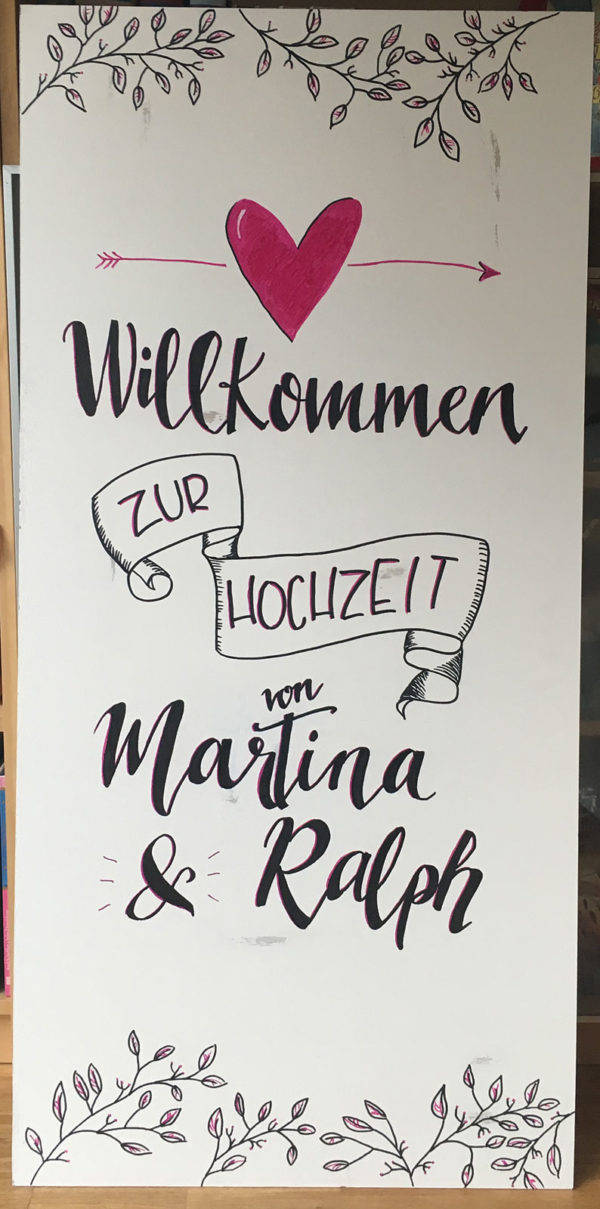 Willkommen
ZUR
HOCHZEIT
von
Martina
& Ralph